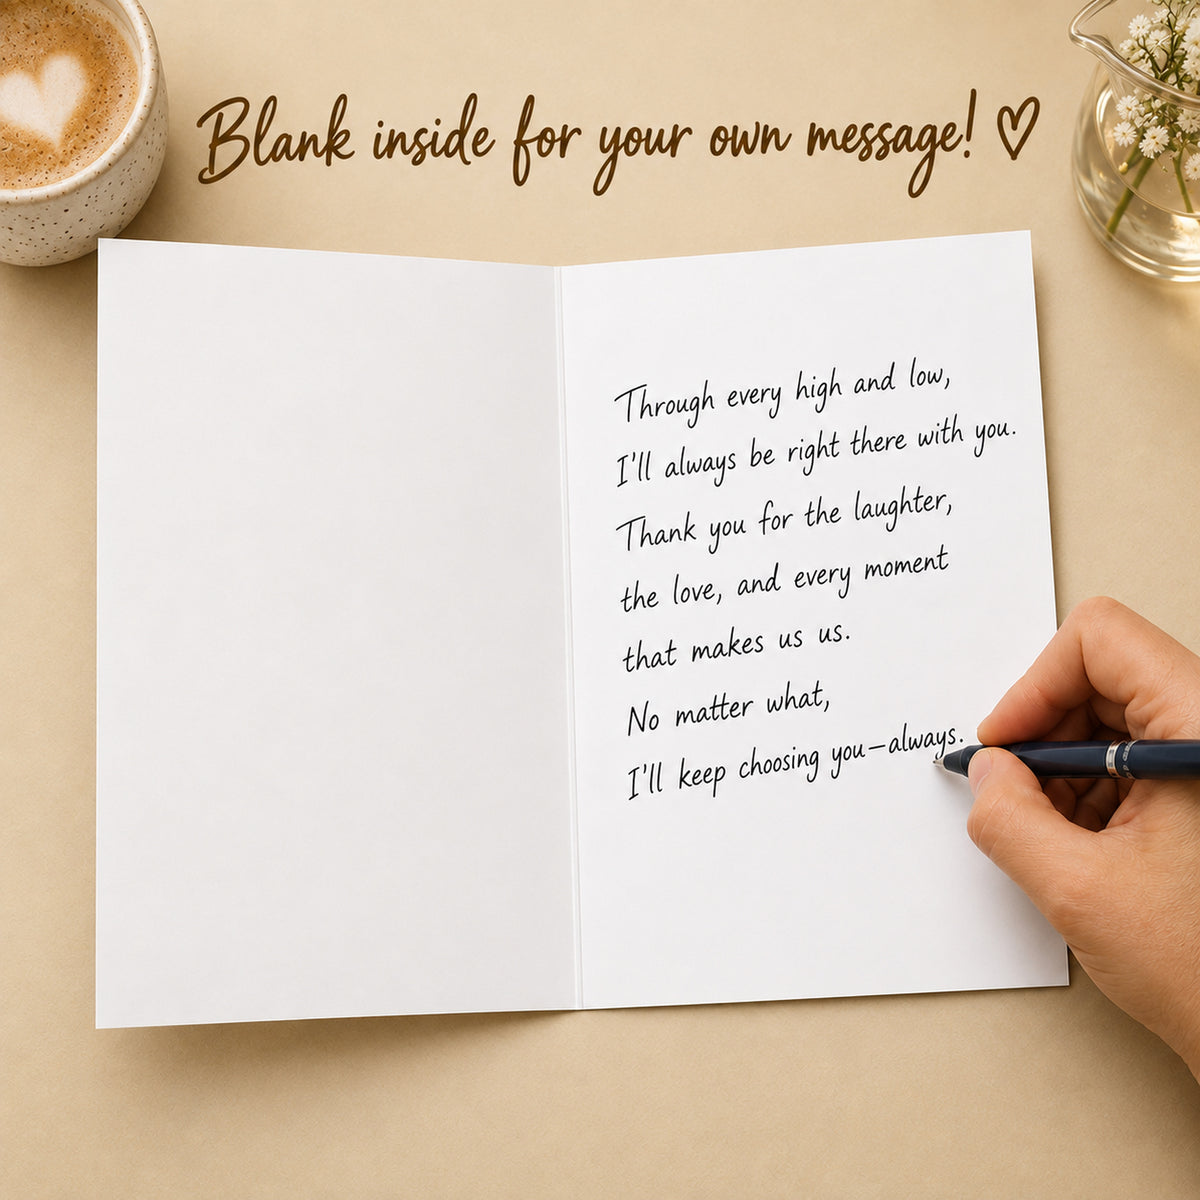 Blank inside for your own message! ♡
Through every high and low,
I'll always be right there with you.
Thank you for the laughter,
the love, and every moment
that makes us us.
No matter what,
I'll keep choosing you—always.